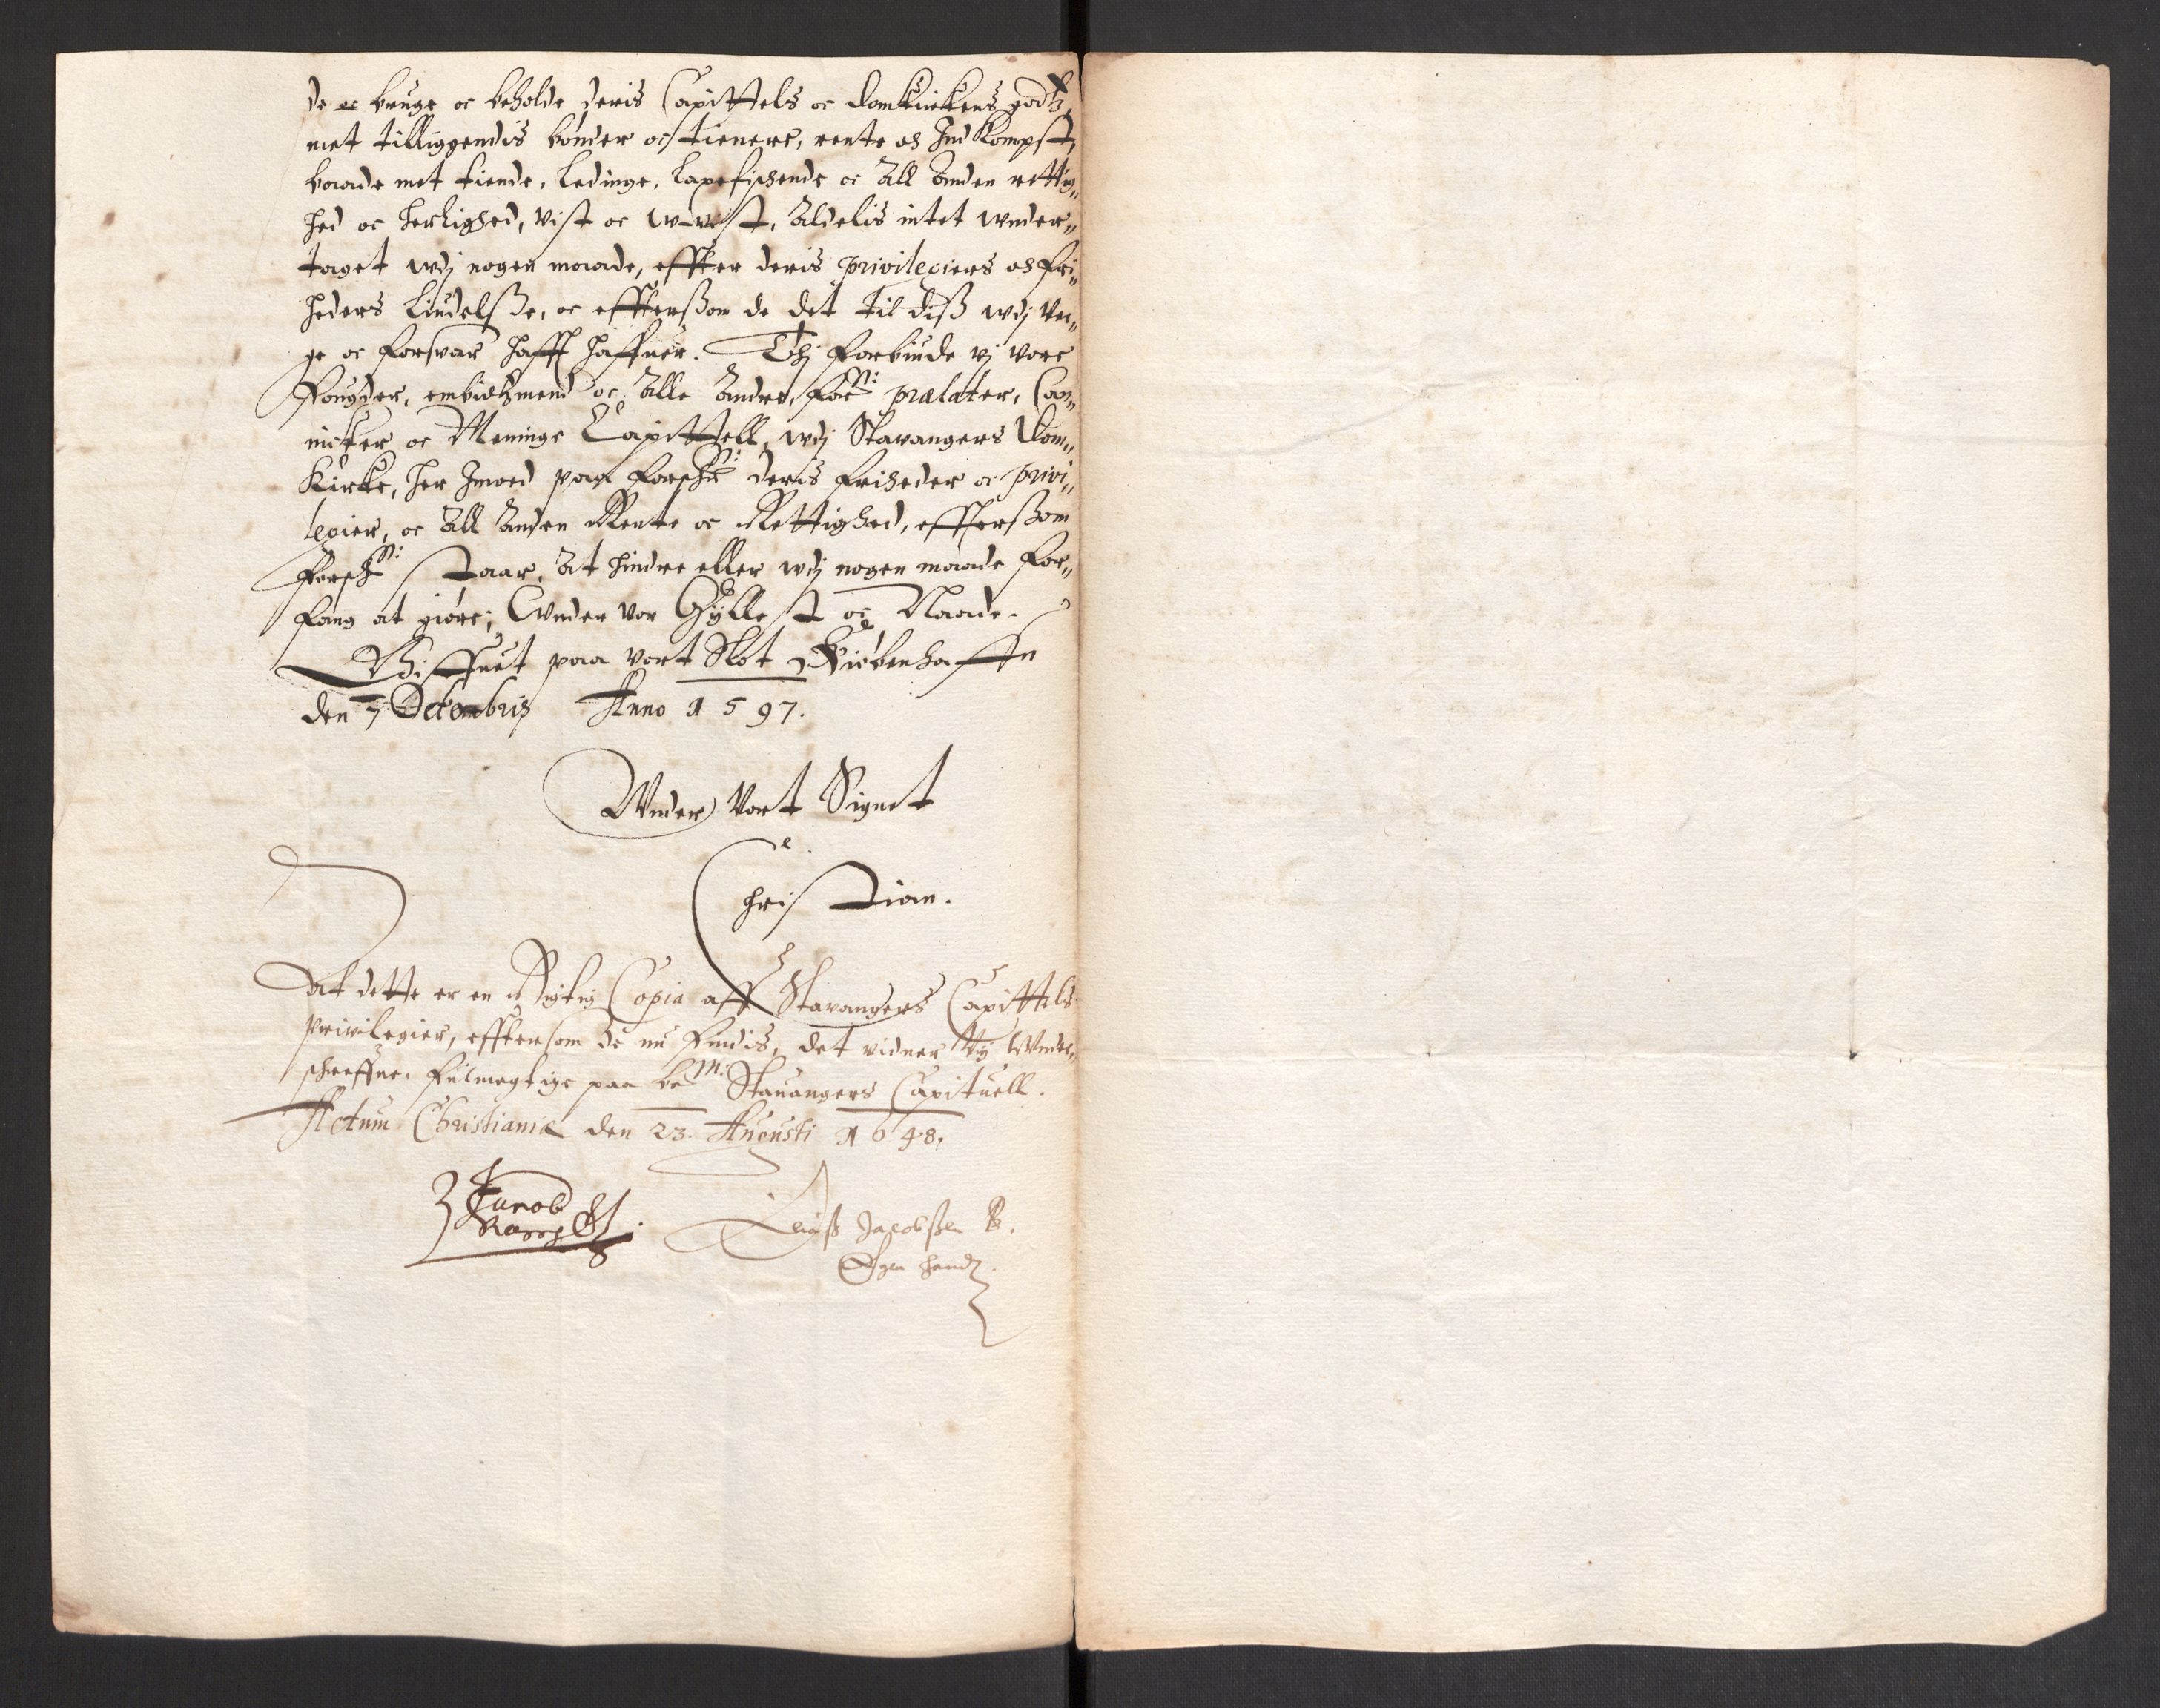 de oc bruge oc beholde deris Capittels oc Domkirkens godtz,
met tilliggendis bønder oc tienere, rente och Indkompst,
baade met tiende, Ledinge, Laxefischende oc All Anden rettig„
hed oc herlighed, vist oc w-vist, Aldelis intet wnder„
taget wdj nogen maade, effter deris privilegiers och fri„
heders Liudelsße, oc effterßom de det til diß wdj Ver„
ge oc forsvar hafft haffuer. Thj forbiude vj vore
Fougder, embidtzmend oc Alle Andre, forne: prælater, Can„
nicker oc Meninge Capittell, wdj Stavangers Dom„
Kircke, her Imod paa forschne: deris friheder oc privi„
legier, oc All Anden Rente oc Rettighed, effterßom
forschne: staar, At hindre eller wdj nogen maade for„
fang at giøre; Wnder vor Hyllest oc Naade.
Giffuet paa vort Slot Kiøbenhaffn
den 7 Octobris Anno 1597.
Wnder Vort Signet
Christian.
At dette er en Rigtig Copia aff Stavangers Capittels
Privilegier, effttersom de nu findis, det vidner Vij Wnder„
schreffne, fulmegtige paa bem: Stauangers Capituell.
Actum Christianiæ den 23. Augusti 1648.
Jacob
Jacobßen
Egen hand